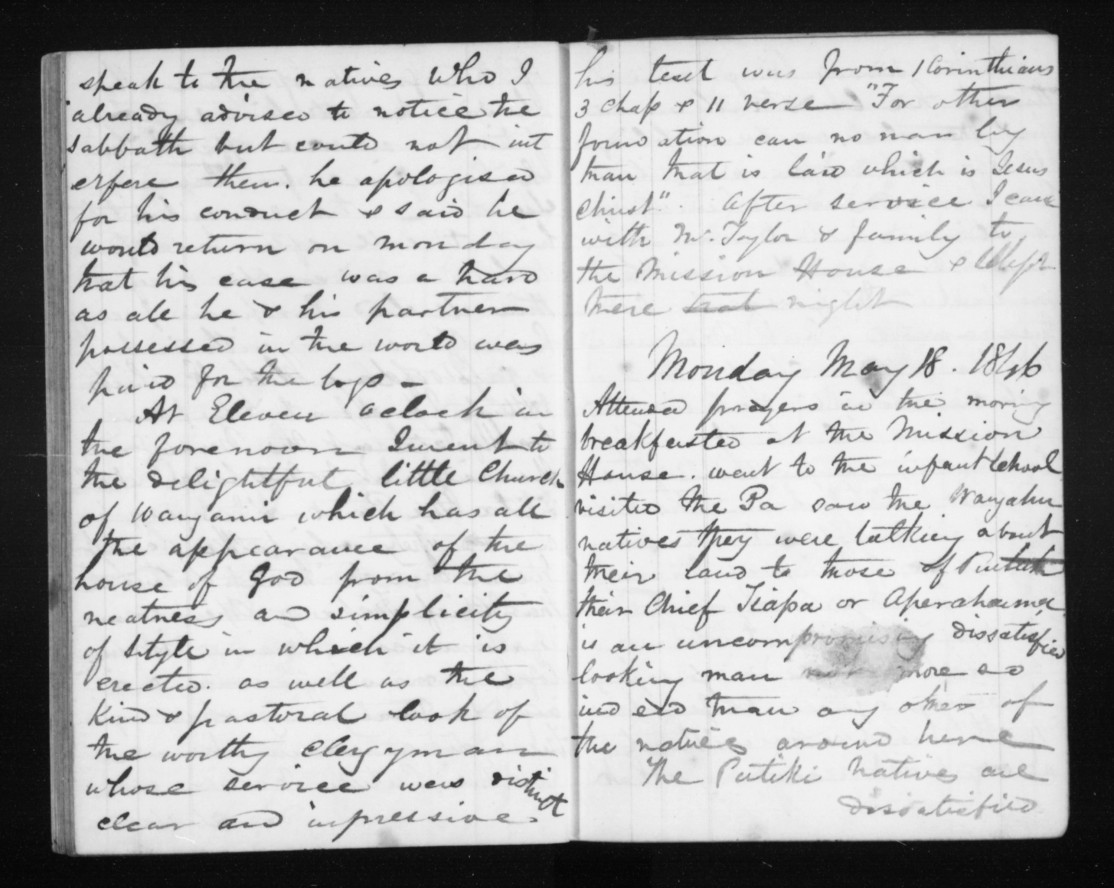 speak to the natives who I
already advised to notice the
sabbath but could not int
erfere then. he apologised
for his conduct & said he
would return on monday
that his case was a hard
as all he & his partner
possessed in the world was
paid for the logs -
At Eleven oclock in
the forenoon I went to
the delightful little Church
of Wanganui which has all
the appearance of the
house of God from the
neatness and simplicity
of style in which it is
erected. as well as the
kind & pastoral look of
the worthy clergyman
whose service was distinct
clear and impressive
his text was from 1 Corinthians
3 chap & 11 verse "For other
foundation can no man lay
than that is laid which is Jesus
christ". After service I came
with Mr. Taylor & family to
the Mission House & slept
there that night
Monday May 18. 1846
Attended prayers in the morning
breakfasted at the Mission
House. went to the infant school
visited the Pa saw the
natives they were talking about
their land to those of
their Chief or
is an uncompromising dissatisfied
looking man more so
indeed than any other of
the natives around here
The Putiki natives are
dissatisfied